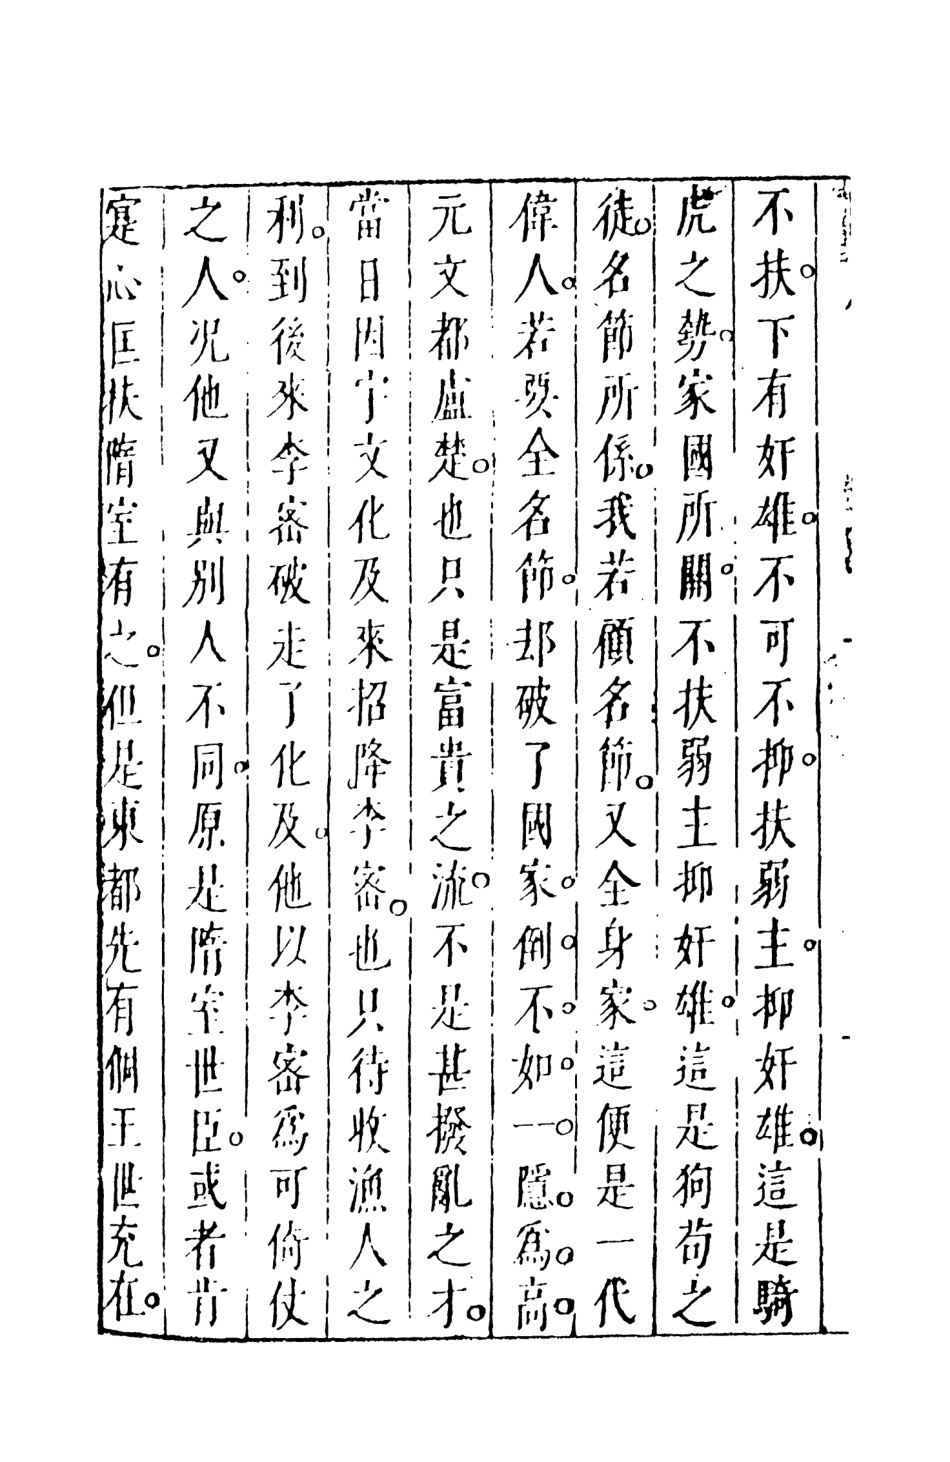 不扶。下有奸雄。不可不抑。扶弱主。抑奸雄。這是騎
虎之勢。家國所關。不扶弱主抑奸雄。這是狗苟之
徒。名節所係。我若顧名節。又全身家。這便是一代
偉人。若要全名節。却破了國家。倒。不。如。一。隱。爲。高。
元文都盧楚。也只是富貴之流。不是甚撥亂之才。
當日因宇文化及來招降李密。也只待收漁人之
利。到後來李密破走了化及。他以李密爲可倚仗
之人。况他又與別人不同。原是隋室世臣。或者肯
寔心匡扶隋室有之。但是東都先有個王世充在。